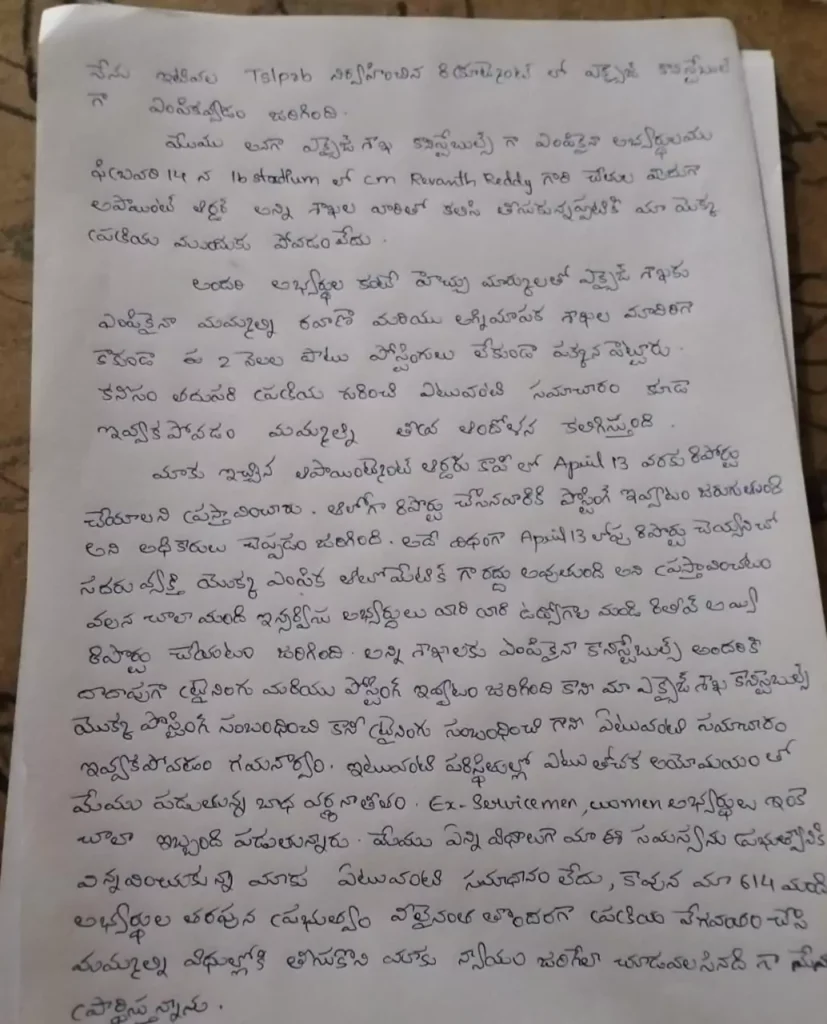 నేను ఇటీవల Tslprb నిర్వహించిన రిక్రూట్మెంట్ లో ఎక్సైజ్ కానిస్టేబుల్
గా ఎంపికవ్వడం జరిగింది.
మేము అనగా ఎక్సైజ్ శాఖ కానిస్టేబుల్స్ గా ఎంపికైన అభ్యర్థులము
ఫిబ్రవరి 14 న lb stadium లో cm Revanth Reddy గారి చేతుల మీదుగా
అపాయింట్ ఆర్డర్ అన్ని శాఖల వారితో కలిసి తీసుకున్నప్పటికీ మా యొక్క
ప్రక్రియ ముందుకు పోవడం లేదు.
అందరి అభ్యర్థుల కంటే హెచ్చు మార్కులతో ఎక్సైజ్ శాఖకు
ఎంపికైనా మమ్మల్ని రవాణా మరియు అగ్నిమాపక శాఖల మాదిరిగా
కాకుండా ఈ 2 నెలల పాటు పోస్టింగులు లేకుండా పక్కన పెట్టారు.
కనీసం తదుపరి ప్రక్రియ గురించి ఎటువంటి సమాచారం కూడా
ఇవ్వాకపోవడం మమ్మల్ని తీవ్ర ఆందోళన కలిగిస్తుంది.
మాకు ఇచ్చిన అపాయింట్మెంట్ ఆర్డరు కాపీ లో April 13 వరకు రిపోర్టు
చేయాలని ప్రస్తావించారు. అలాగా రిపోర్టు చేసినవారికి పోస్టింగ్ ఇవ్వటం జరుగుతుంది
అని అధికారులు చెప్పడం జరిగింది. అదే విధంగా April 13 లోపు రిపోర్టు చెయ్యనిచో
సదరు వ్యక్తి యొక్క ఎంపిక ఆటోమేటిక్ గా రద్దు అవుతుంది అని ప్రస్తావించటం
వలన చాలా మంది ఇన్సర్వీసు అభ్యర్థులు వారి వారి ఉద్యోగాల నుండి రిలీవ్ అయ్యి
రిపోర్టు చేయటం జరిగింది. అన్ని శాఖలకు ఎంపికైనా కానిస్టేబుల్స్ అందరికి
దాదాపుగా ట్రైనింగు మరియు పోస్టింగ్ ఇవ్వటం జరిగింది కాని మా ఎక్సైజ్ శాఖ కానిస్టేబుల్స్
యొక్క పోస్టింగ్ సంబంధించి కానీ ట్రైనింగు సంబంధించి గాని ఏటువంటి సమాచారం
ఇవ్వకపోవడం గమనార్హం. ఇటువంటి పరిస్థితుల్లో ఎటు తోచక అయోమయం తో
మేము పడుతున్న బాధ వర్ణనాతీతం. Ex-Servicemen, women అభ్యర్థులు ఇంకా
చాలా ఇబ్బంది పడుతున్నారు. మేము ఎన్ని విధాలుగా మా ఈ సమస్యను ప్రభుత్వానికి
విన్నవించుకున్నా మాకు ఏటువంటి సమాధానం లేదు, కావున మా 614 మంది
అభ్యర్థుల తరపున ప్రభుత్వం వీలైనంత తొందరగా ప్రక్రియ వేగవంతం చేసి
మమ్మల్ని విధుల్లోకి తీసుకొని మాకు న్యాయం జరిగేలా చూడవలసినది గా మేము
ప్రార్థిస్తున్నాను.